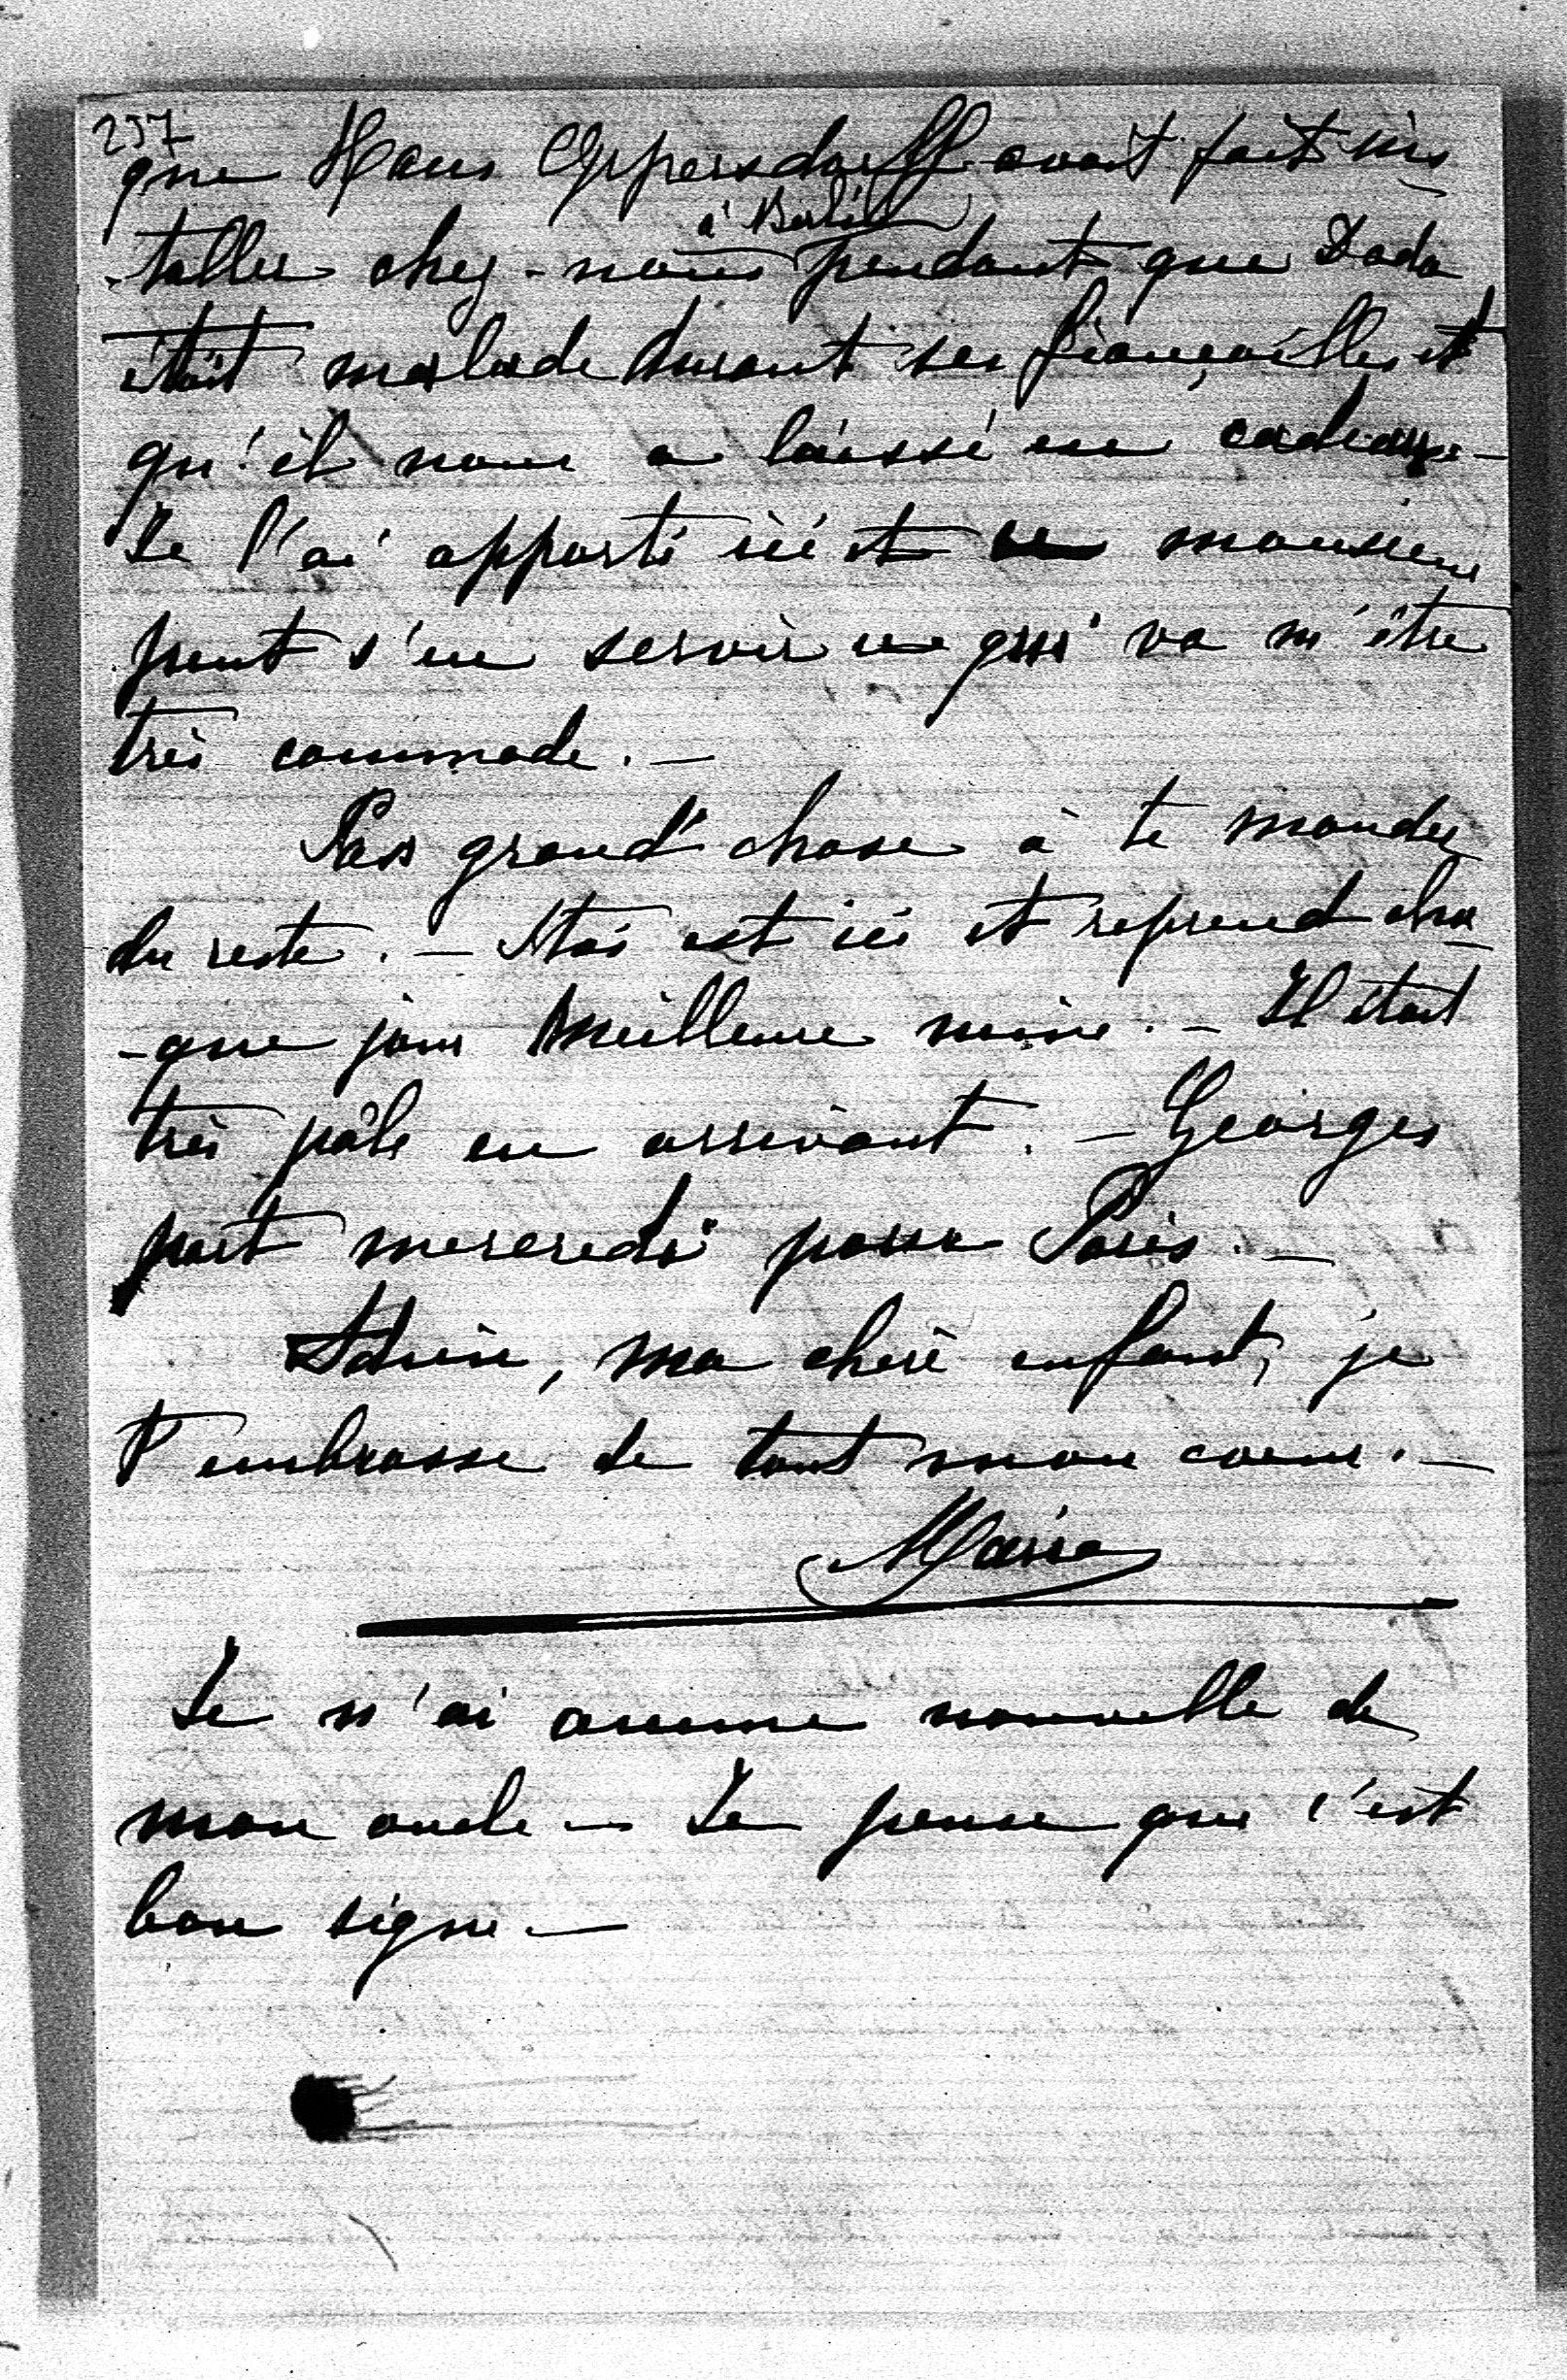 257
que Hans Oppersdorff avait fait ins
à Berlin
-taller chez-nous pendant que Dada
était malade durant ses fiançailles et
qu'il nous a laissé en cadeau.-
Je l'ai apporté ici et monsieur
peut s'en servir ce qui va m'être
très commode.-
Pas grand'chose à te mander
du reste.- Stas est ici et reprend cha
-que jour meilleure mine.- Il était
très pâle en arrivant.- Georges
part mercredi pour Paris.-
Adieu, ma chère enfant, je
t'embrasse de tout mon coeur.-
Marie
Je n'ai aucune nouvelle de
mon oncle - Je pense que c'est
bon signe-